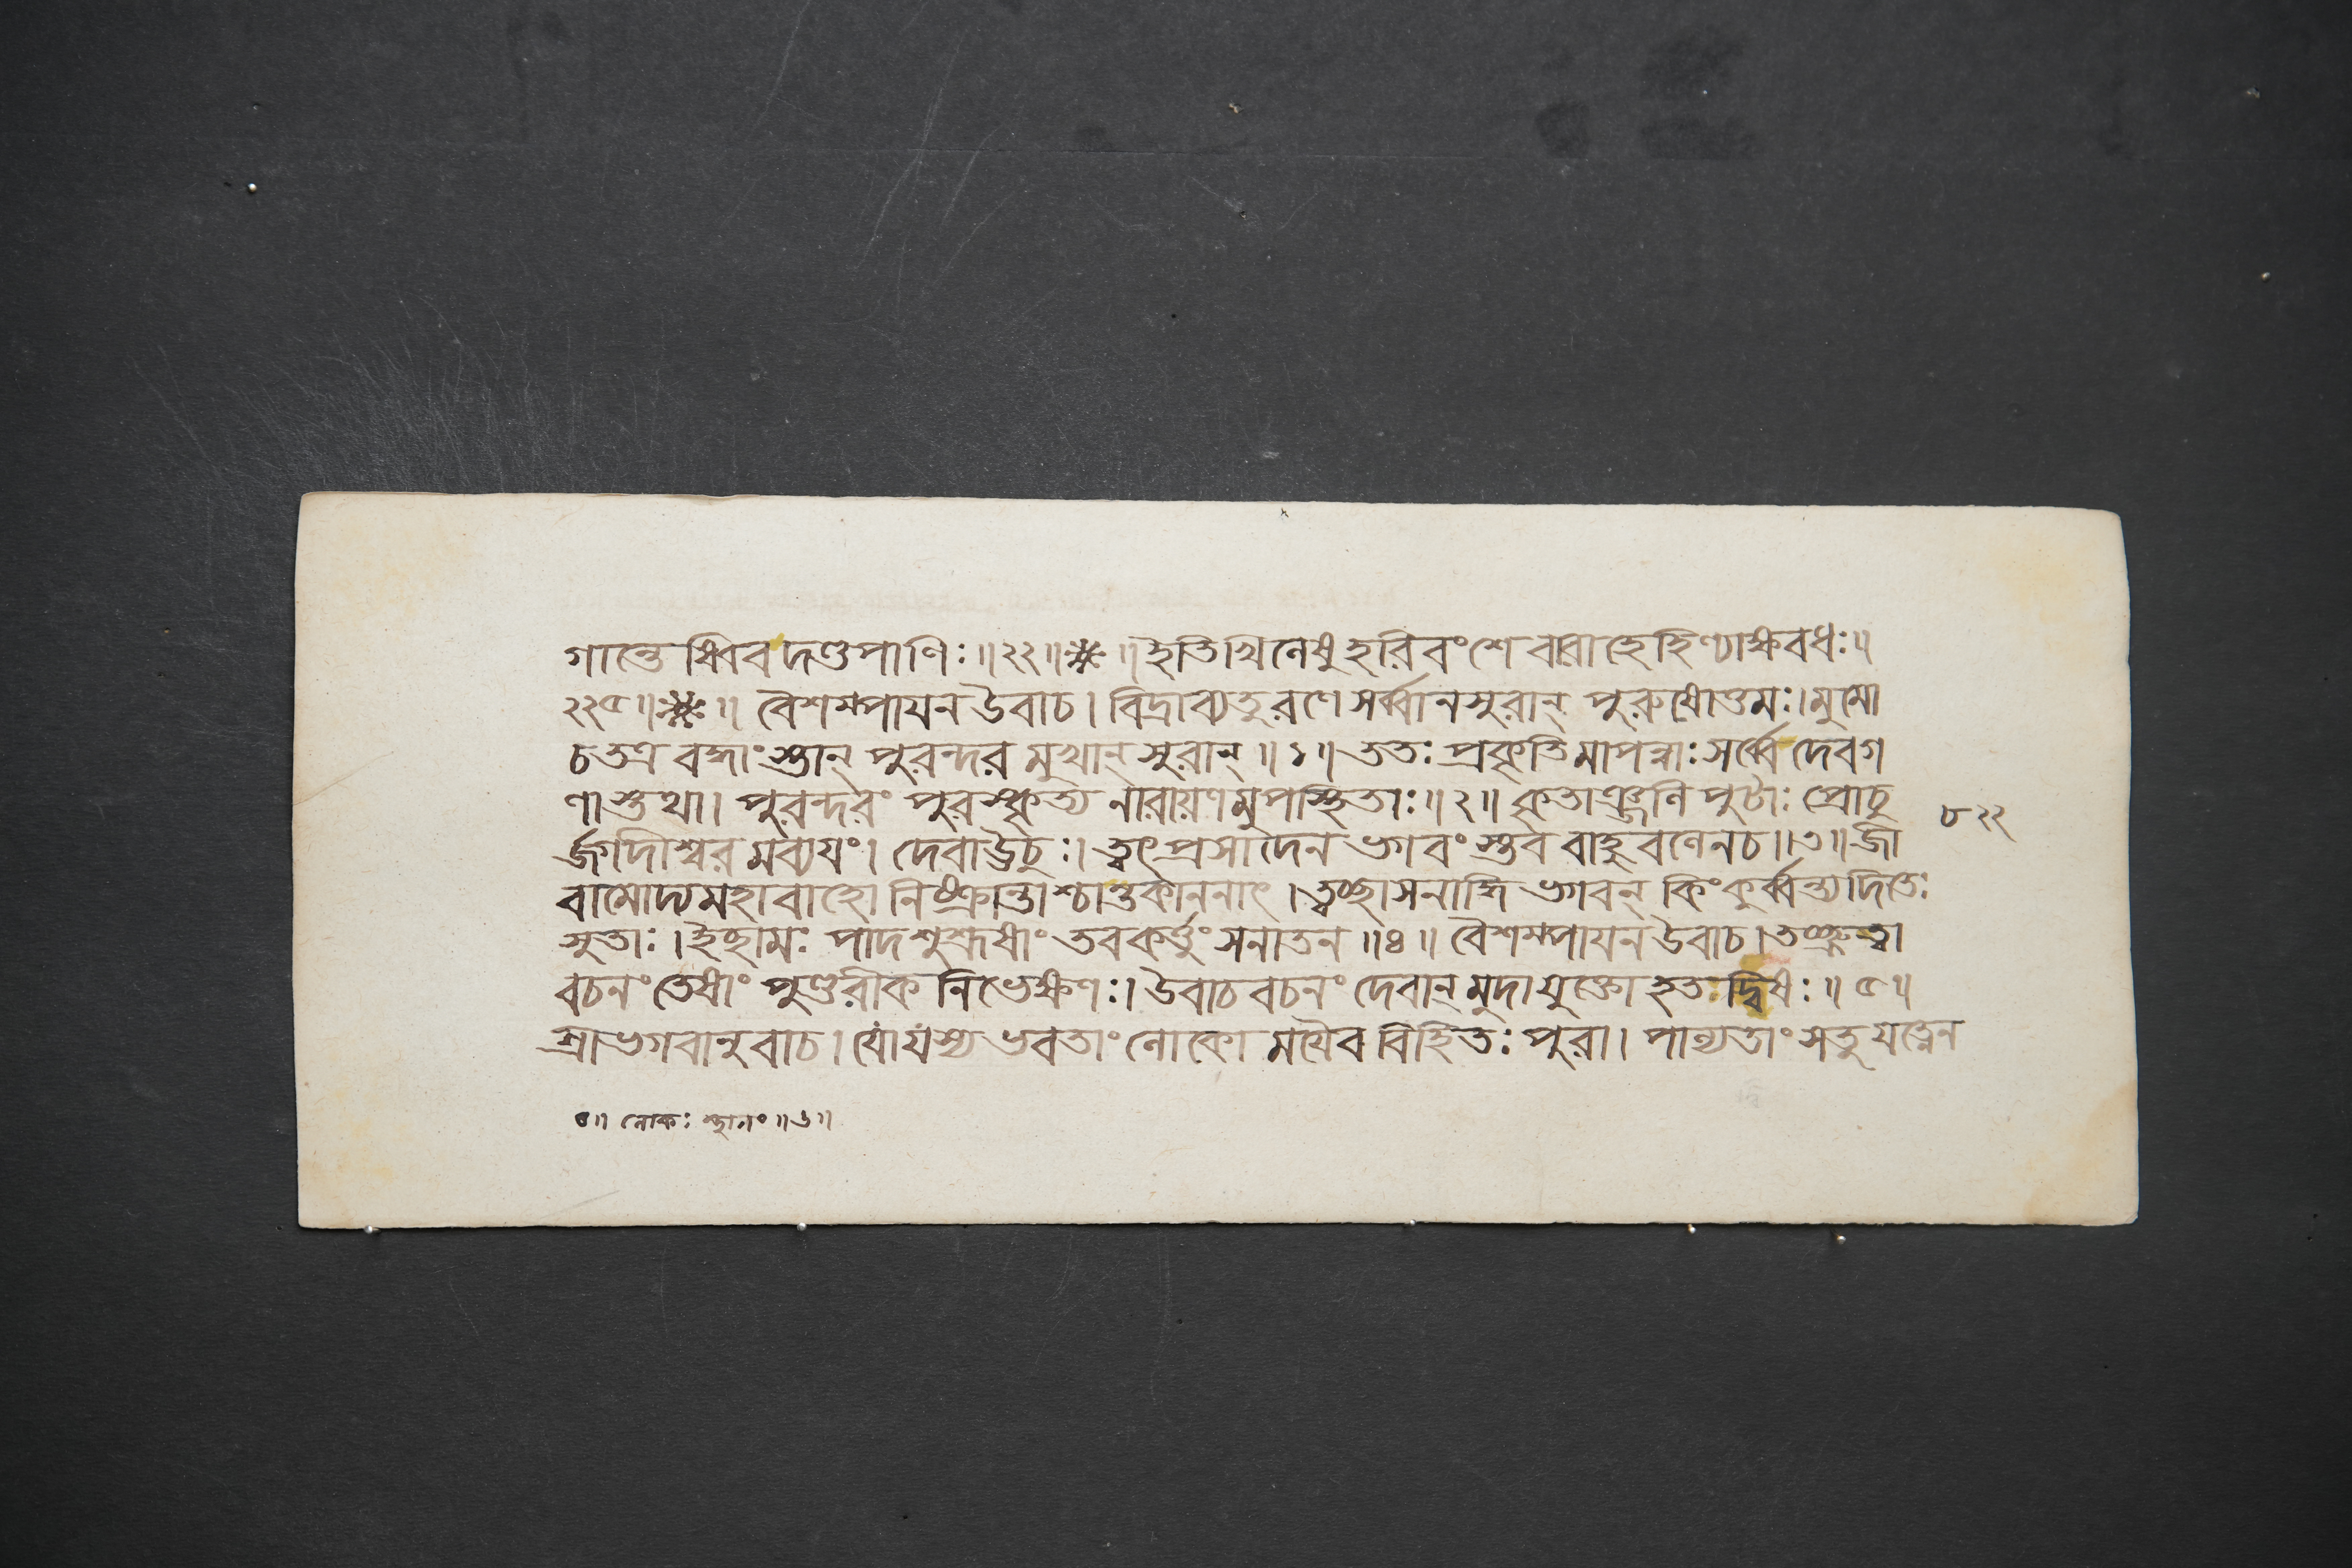 গান্তেষ্বিব দণ্ডপাণিঃ॥২২॥※॥ইতিখিলেষু হরিবংশে বারাহে হিণ্যাক্ষবধঃ॥
২২৫॥※॥ বৈশম্পায়ন উবাচ। বিদ্রাব্যতু রণে সর্ব্বানসুরান্ পুরুষোত্তমঃ। মুমো
চ তত্র বদ্ধাংস্তান্ পুরন্দর মুখান্ সুরান্॥১॥ ততঃ প্রকৃতিমাপন্নাঃ সর্ব্বে দেবগ
ণাস্তথা। পুরন্দরং পুরস্কৃত্য নারায়ণমুপস্থিতাঃ॥২॥ কৃতাঞ্জলি পুটাঃ প্রোচু
৮২২
র্জ্জগদীশ্বর মব্যয়ং। দেবা উচুঃ। ত্বৎপ্রসাদেন ভগবংস্তব বাহু বলেন চ॥৩॥ জী
বামোদ্য মহাবাহো নিষ্ক্রান্তাশ্চান্তকাননাৎ। ত্বচ্ছাসনাদ্ধি ভগবন্ কিং কুর্ব্বন্ত্যদিতেঃ
সুতাঃ। ইচ্ছামঃ পাদশুশ্রূষাং তব কর্ত্তুং সনাতন॥৪॥ বৈশম্পায়ন উবাচ। তচ্ছ্রুত্বা
বচনং তেষাং পুণ্ডরীক নিভেক্ষণঃ। উবাচ বচনং দেবান্ মুদা যুক্তো হত দ্বিষঃ॥৫॥
শ্রীভগবানুবাচ। যোয়ংস্য ভবতাং লোকো ময়ৈব বিহিতঃ পুরা। পাল্যতাং সতু যত্নেন
৪॥ লোকঃ স্থানং॥৬॥